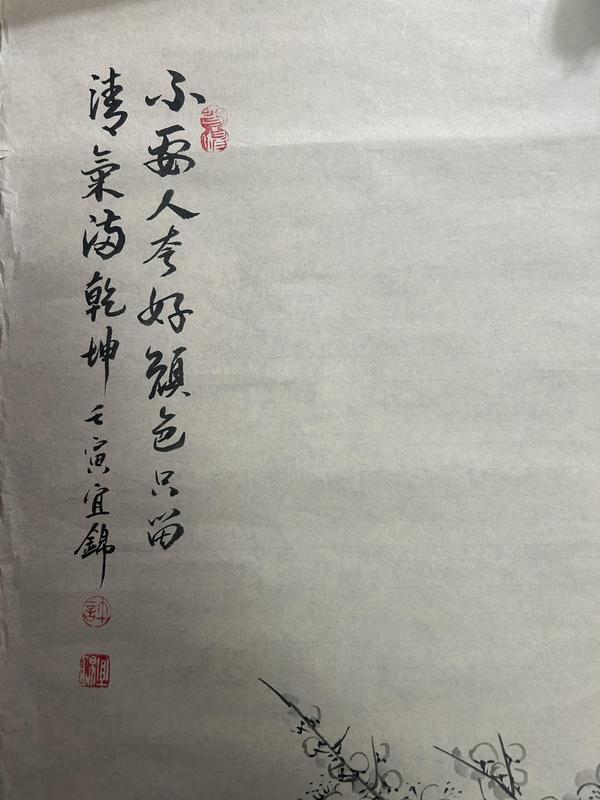 不要人夸好顔色只留
清氣滿乾坤 壬寅宜錦